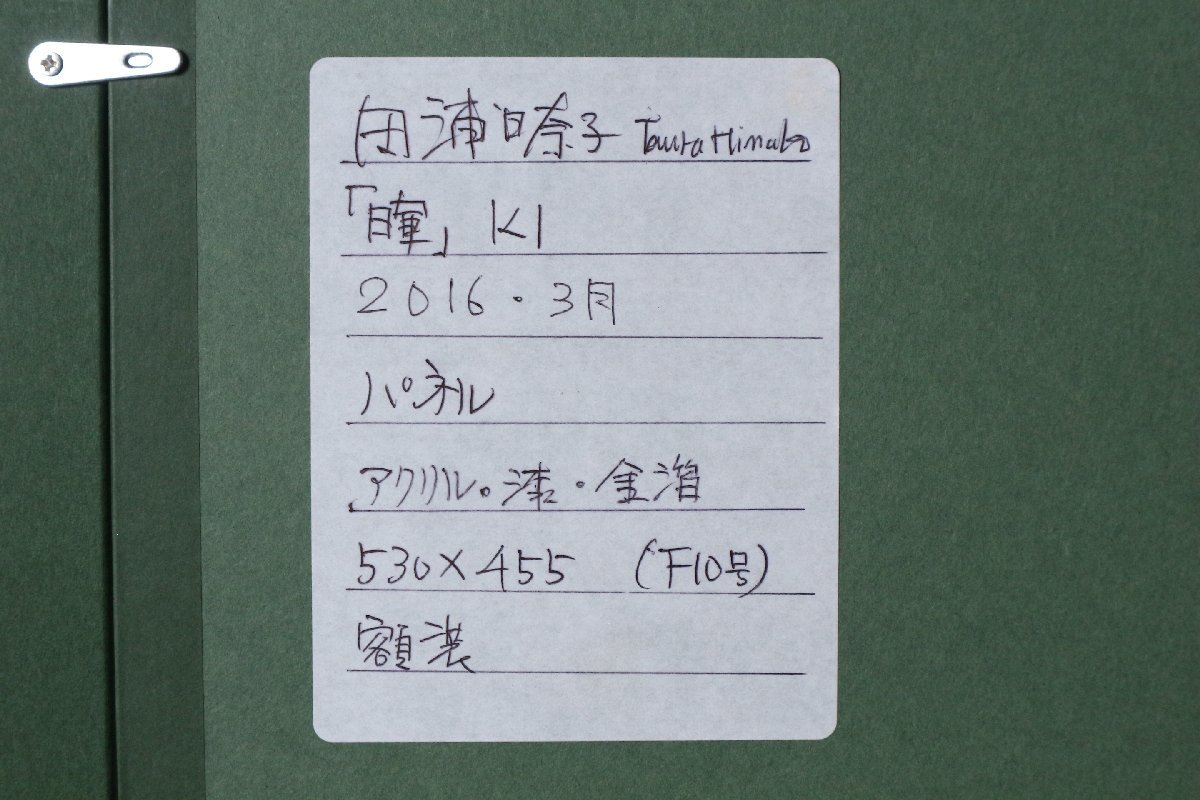 田浦日奈子 Taura Hinako
「暉」 KI
2016・3月
パネル
アクリル・漆・金消
530×455 (F10号)
額装